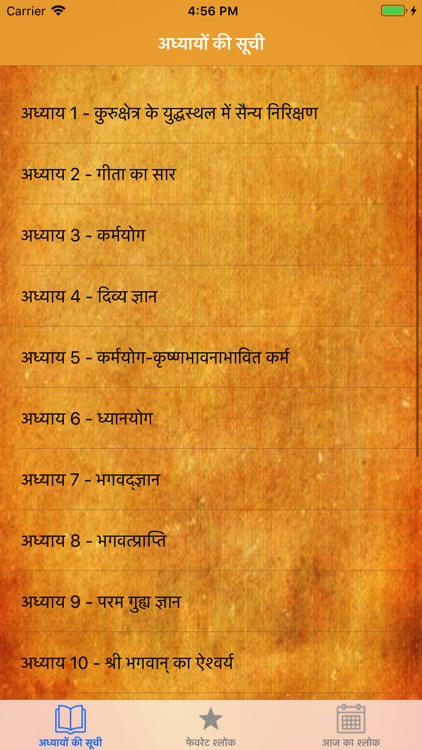 Carrier 4:56 PM
अध्यायों की सूची
अध्याय 1 - कुरुक्षेत्र के युद्धस्थल में सैन्य निरिक्षण
अध्याय 2 - गीता का सार
अध्याय 3 - कर्मयोग
अध्याय 4 - दिव्य ज्ञान
अध्याय 5 - कर्मयोग-कृष्णभावनाभावित कर्म
अध्याय 6 - ध्यानयोग
अध्याय 7 - भगवद्ज्ञान
अध्याय 8 - भगवत्प्राप्ति
अध्याय 9 - परम गुह्य ज्ञान
अध्याय 10 - श्री भगवान् का ऐश्वर्य
अध्यायों की सूची फेवरेट श्लोक आज का श्लोक